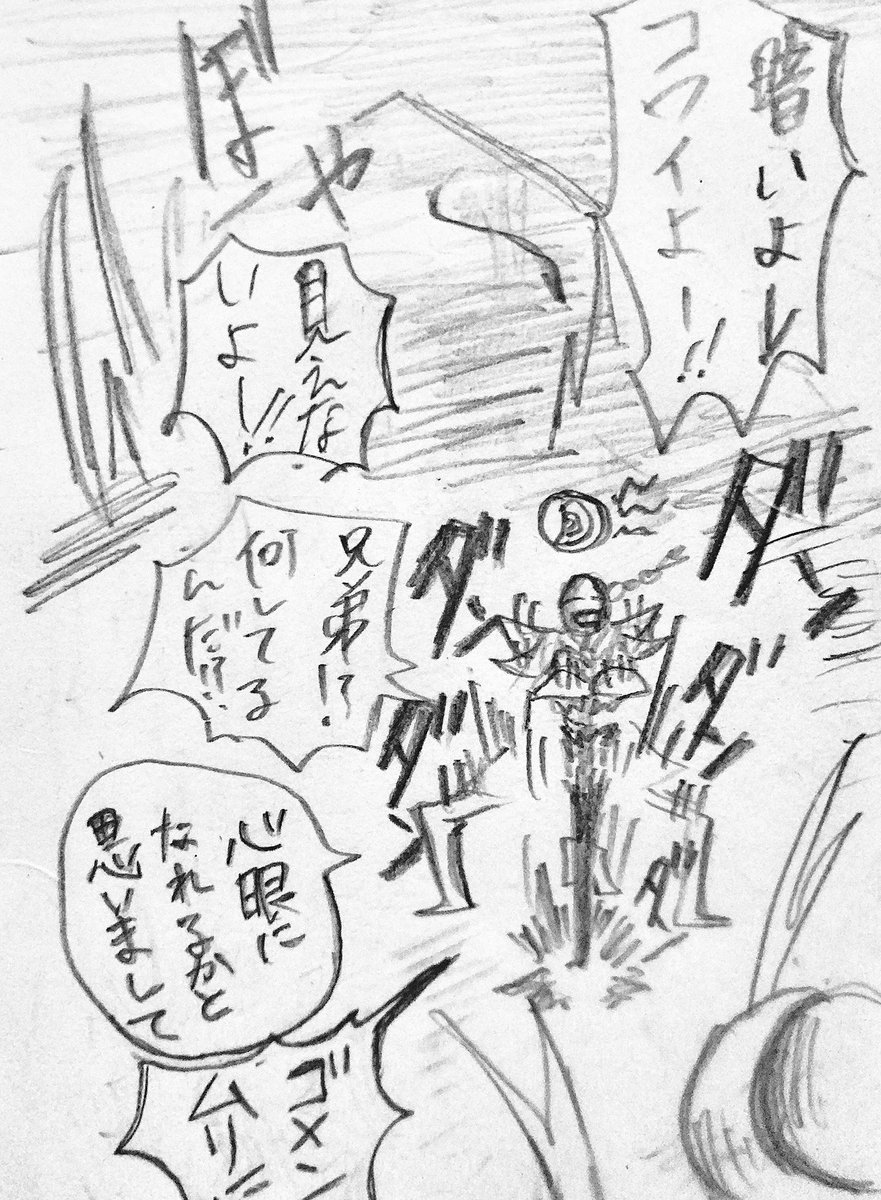 暗いよー
コワイよー!!
ぼよ
や
見えな
いよー!!
兄弟!?
何してる
んだ!?
ダン
ダン
ダン
ダン
ダ
心眼に
なれるかと
思いまして
ゴメン
ムリ